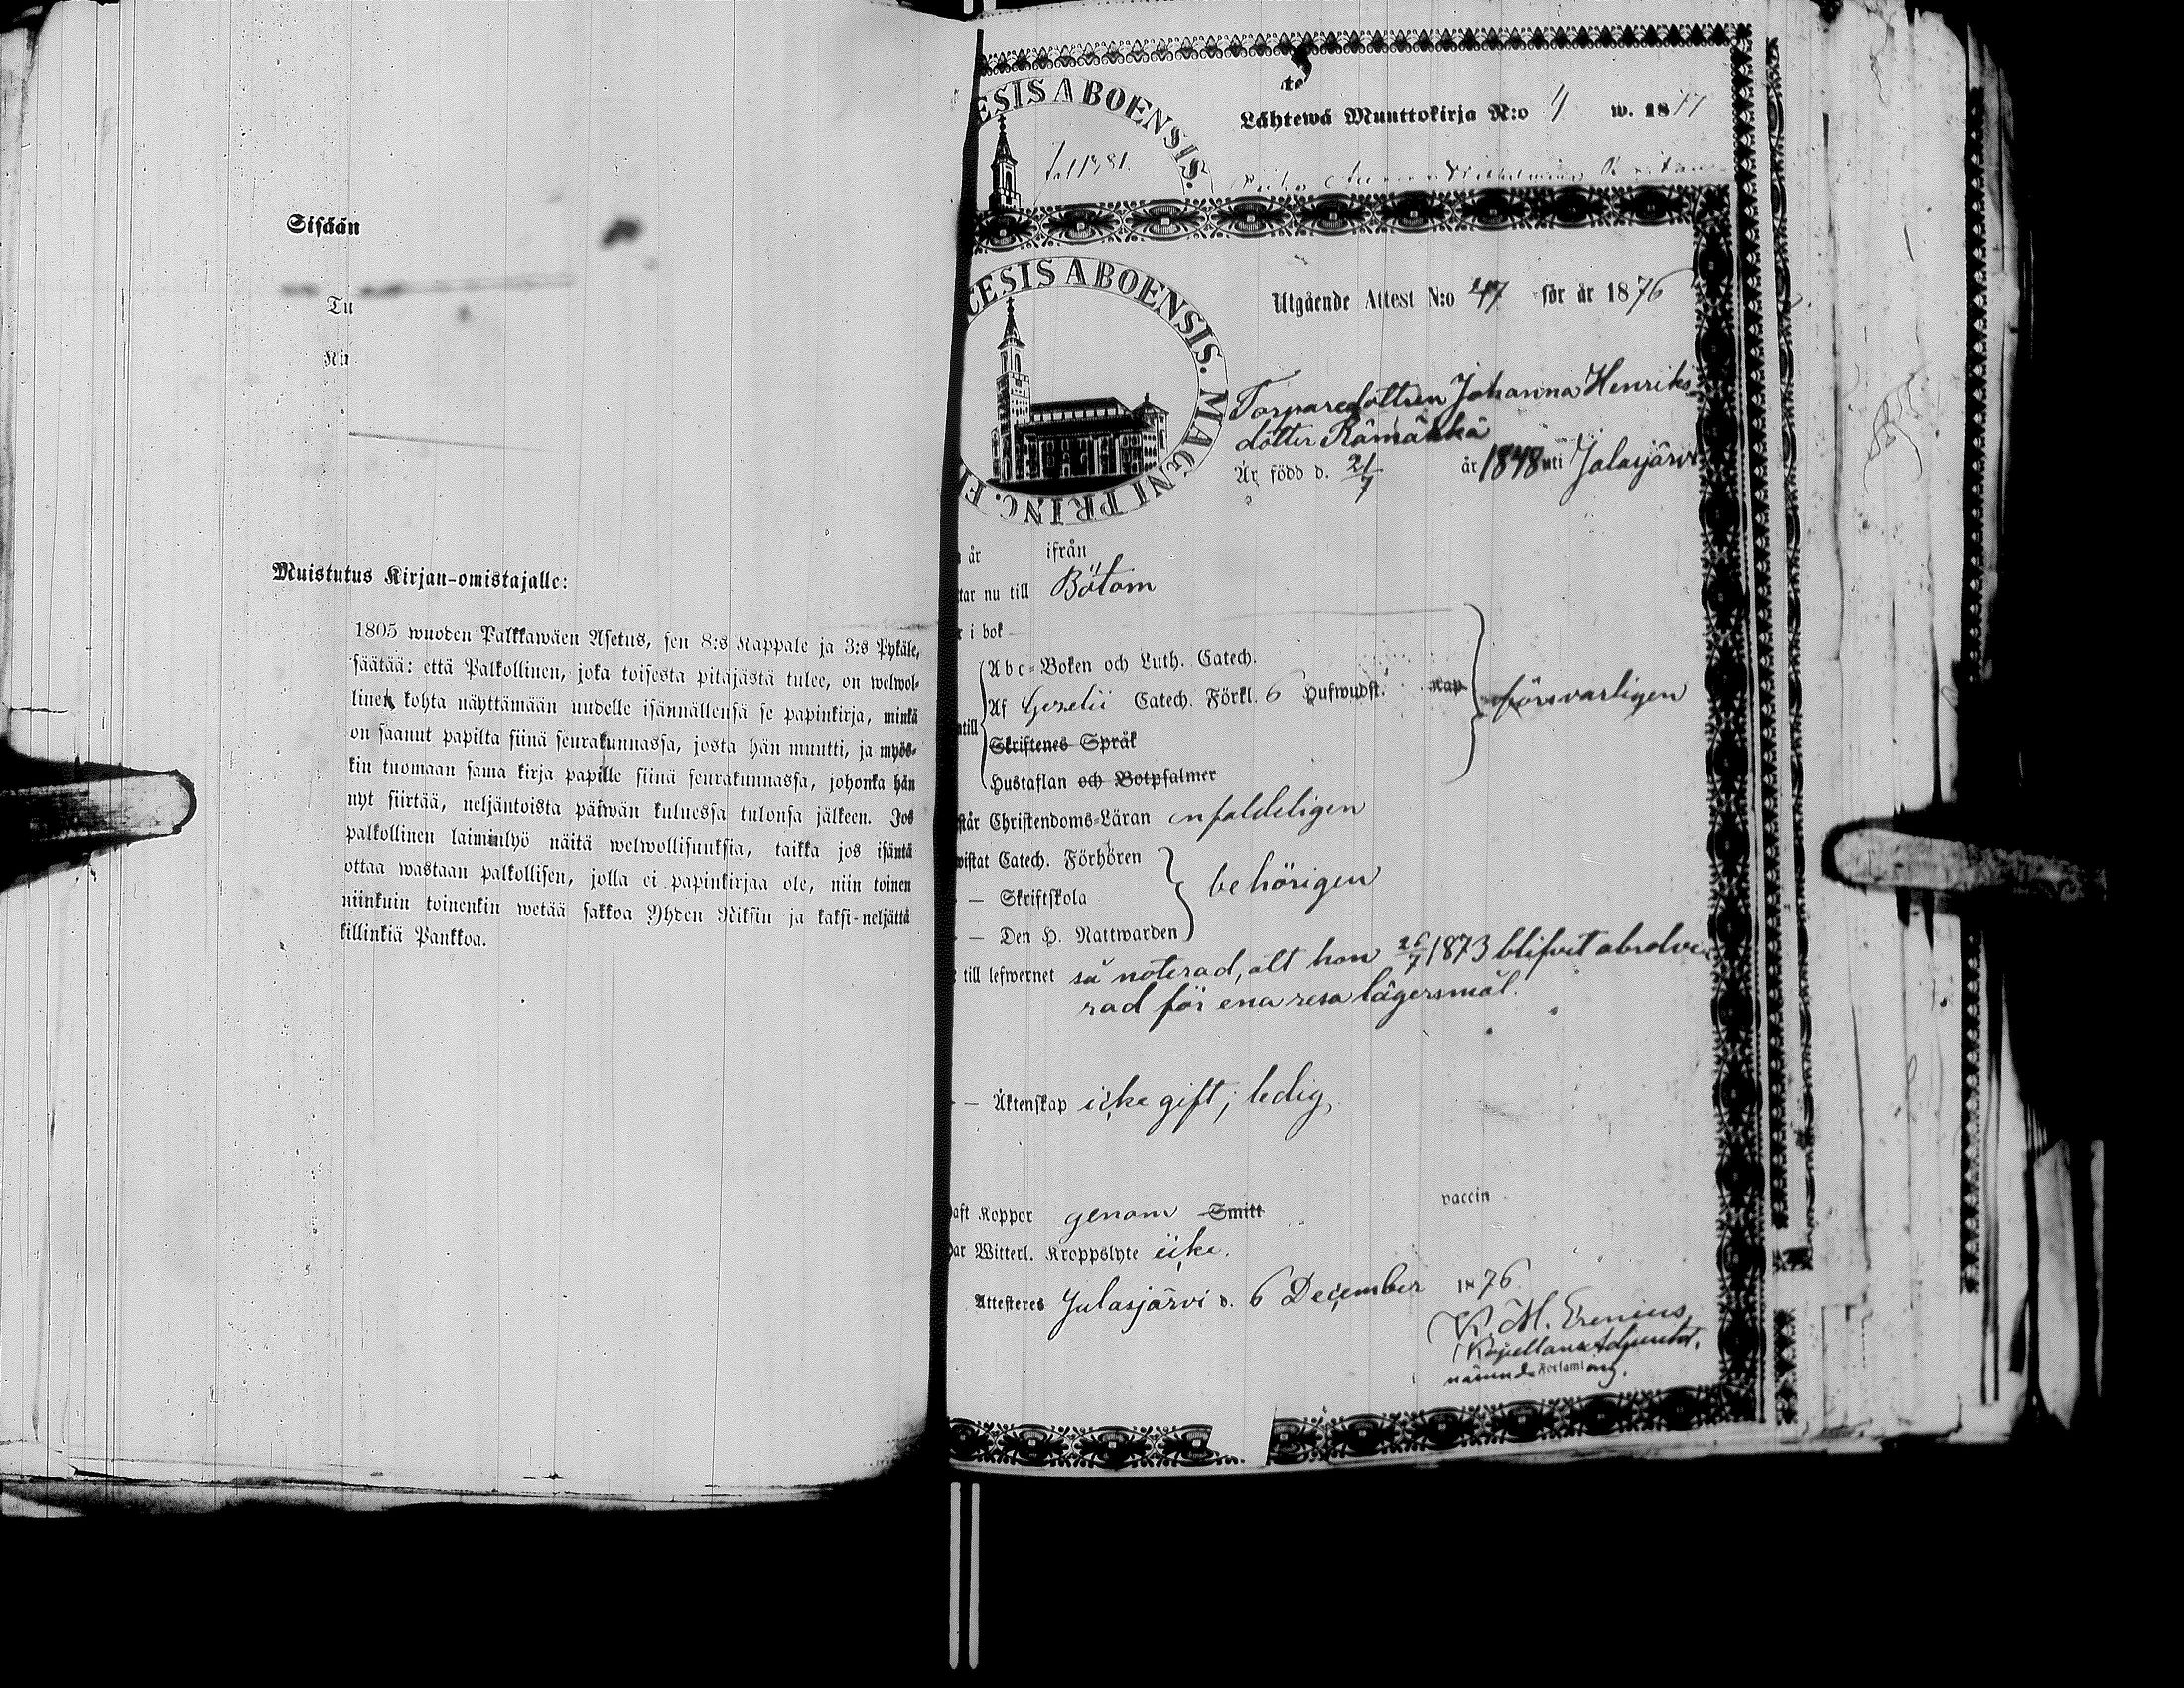 Sisään
Tu
Kir
Muistutus Kirjan-omistajalle:
1805 wuoden Palkkawäen Asetus, sen 8:s Kappale ja 3:s Pykäle,
säätää: että Palkollinen, joka toisesta pitäjästä tulee, on welwol-
linen kohta näyttämään uudelle isännällensä se papinkirja, minkä
on saanut papilta siinä seurakunnassa, josta hän muutti, ja myös-
kin tuomaan sama kirja papille siinä seurakunnassa, johonka hän
nyt siirtää, neljäntoista päiwän kuluessa tulonsa jälkeen. Jos
palkollinen laiminlyö näitä welwollisuuksia, taikka jos isäntä
ottaa wastaan palkollisen, jolla ei papinkirjaa ole, niin toinen
niinkuin toinenkin wetää sakkoa Yhden Riksin ja kaksi-neljättä
killinkiä Pankkoa.
ESIS ABOENSIS.
Lähtewä Muuttokirja N:o 4 w. 1877
CESIS ABOENSIS. MAGNI PRINC. F
Utgående Attest N:o 47 för år 1876
Torparedottren Johanna Henriks
dotter Rämäkkä
Är född d. 21/7 år 1848 uti Jalasjärvi
år ifrån
tar nu till Bötom
i bok
Abc-Boken och Luth. Catech.
Af Gezelii Catech. Förkl. 6 Hufwudst. Kap
försvarligen
ntill
Skriftenes Språk
Hustaflan och Botpsalmer
står Christendoms-Läran enfaldeligen
wistat Catech. Förhören
— Skriftskola behörigen
— Den H. Nattwarden
till lefwernet så noterad, att hon 26/7 1873 blifvit absolve
rad för ena resa lägersmål.
— Äktenskap icke gift; ledig,
haft Koppor genom Smitt vaccin
har Witterl. Kroppslyte icke.
Attesteres Jalasjärvi d. 6 December 1876
K. M. Erenius
Kapellans Adjunct.